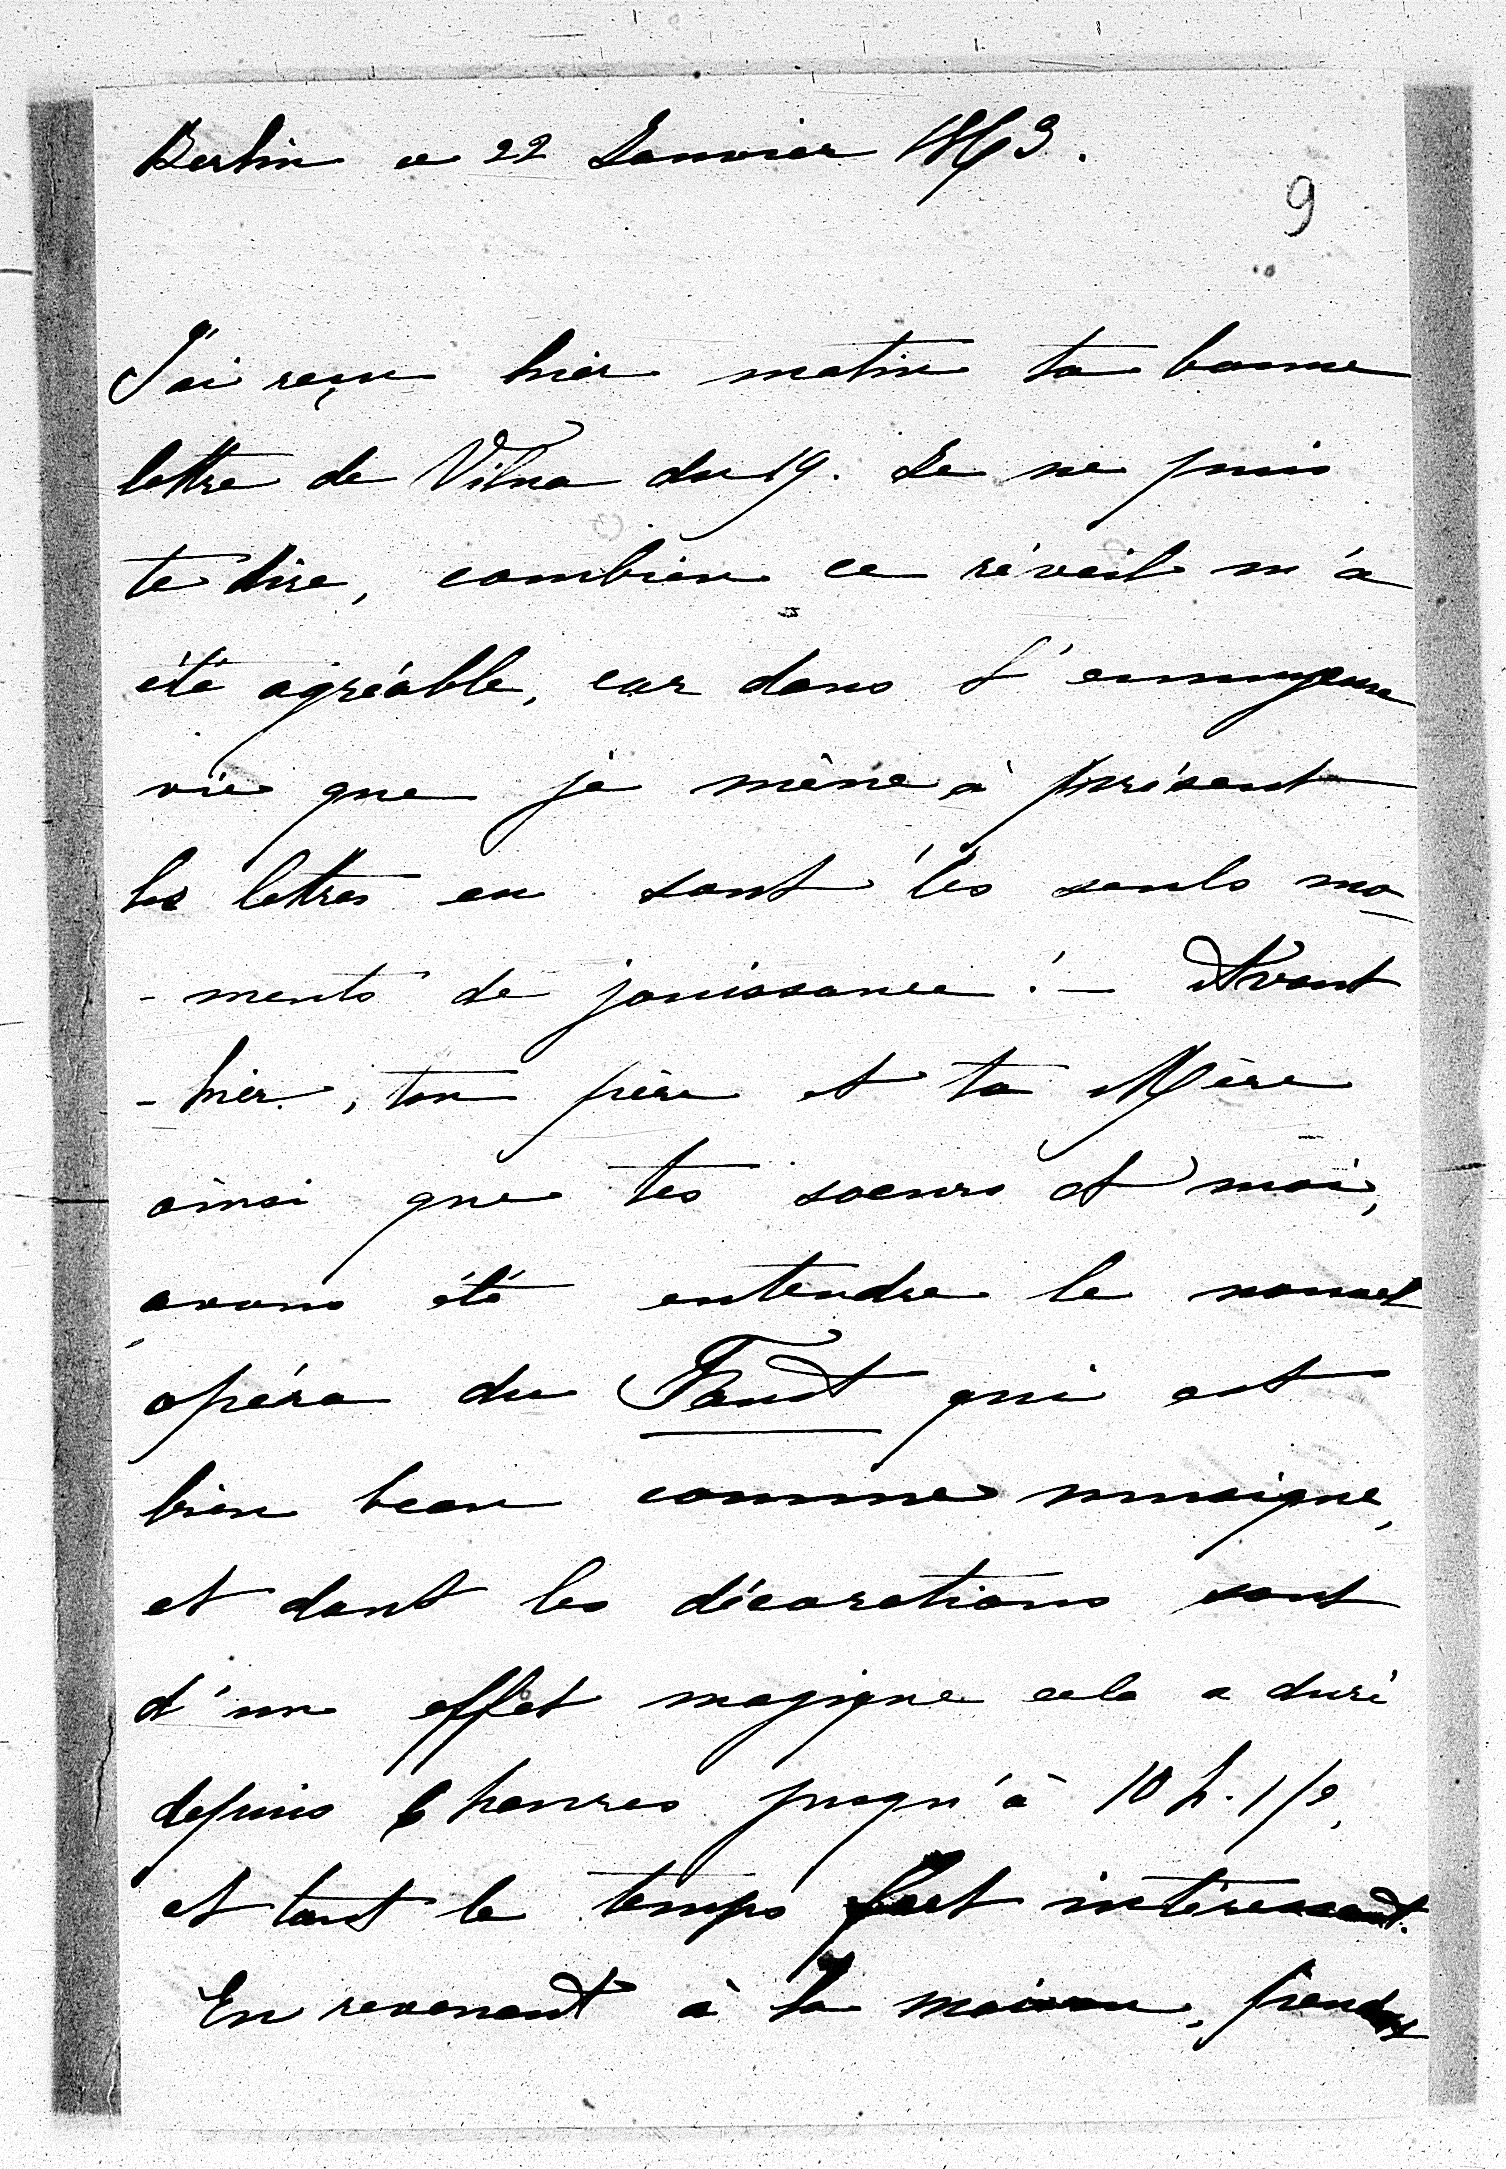 Berlin ce 22 Janvier 1863.
9
J'ai reçu hier matin ta bonne
lettre de Vilna du 19. Je ne puis
te dire, combien ce réveil m'a
été agréable, car dans l'ennuyeuse
vie que je mène à présent
les lettres en sont les seuls mo-
-ments de jouissance! – Avant
-hier, ton père et ta Mère
ainsi que tes soeurs et moi,
avons été entendre le nouvel
opéra du Faust qui est
bien beau comme musique,
et dont les décorations sont
d'un effet magique cela a duré
depuis 6 heures jusqu'à 10 h. 1/2,
et tout le temps fort intéressant.
En revenant à la maison,